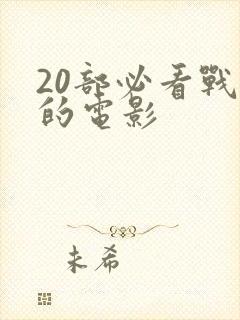 20部必看戰
的電影
未希